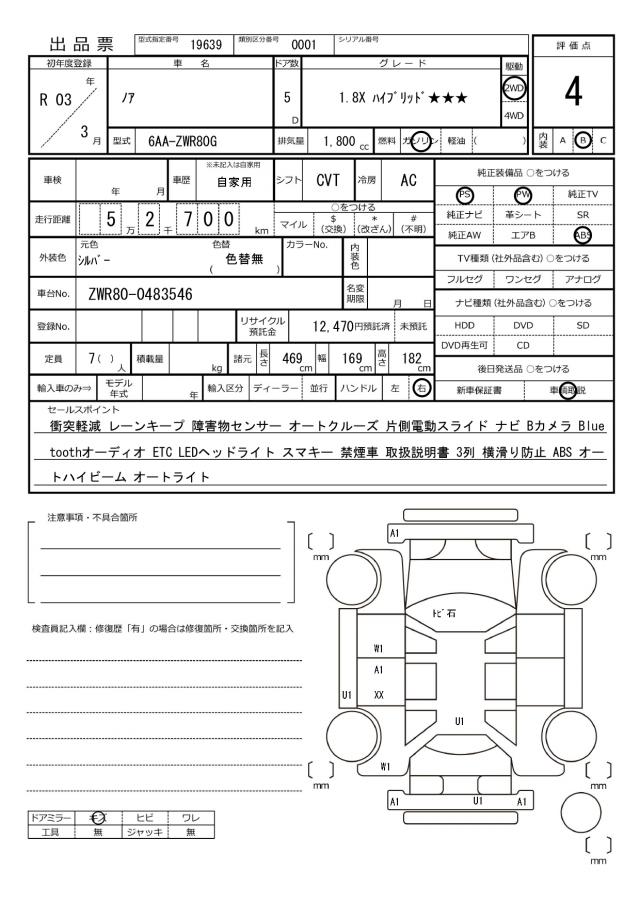 出品票 型式指定番号 19639 類別区分番号 0001 シリアル番号
評価点
4
内装 A B C
初年度登録 車名 ドア数 グレード 駆動
R 03 年 3 月
ノア 5 D 1.8X ハイブリッド★★★ 2WD 4WD
型式 6AA-ZWR80G 排気量 1,800 cc 燃料 ガソリン 軽油 ( )
車検 年 月 車歴 ※未記入は自家用 自家用 シフト CVT 冷房 AC
走行距離 5 万 2 千 7 0 0 km ○をつける
マイル $ (交換) * (改ざん) # (不明)
外装色 元色 シルバー 色替 ( 色替無 ) カラーNo. 内装色
車台No. ZWR80-0483546 名変期限 月 日
登録No. リサイクル預託金 12,470円預託済 未預託
定員 7 ( ) 人 積載量 kg 諸元 長さ 469 cm 幅 169 cm 高さ 182 cm
輸入車のみ⇒ モデル年式 年 輸入区分 ディーラー 並行 ハンドル 左 右
純正装備品 ○をつける
PS PW 純正TV
純正ナビ 革シート SR
純正AW エアB ABS
TV種類 (社外品含む) ○をつける
フルセグ ワンセグ アナログ
ナビ種類 (社外品含む) ○をつける
HDD DVD SD
DVD再生可 CD
後日発送品 ○をつける
新車保証書 車輌取説
セールスポイント
衝突軽減 レーンキープ 障害物センサー オートクルーズ 片側電動スライド ナビ Bカメラ Blue
toothオーディオ ETC LEDヘッドライト スマキー 禁煙車 取扱説明書 3列 横滑り防止 ABS オー
トハイビーム オートライト
注意事項・不具合箇所
検査員記入欄：修復歴「有」の場合は修復箇所・交換箇所を記入
ドアミラー キズ ヒビ ワレ
工具 無 ジャッキ 無
A1
mm mm
トビ石
W1
A1
U1 XX
U1
W1
mm mm
A1 U1 A1
mm